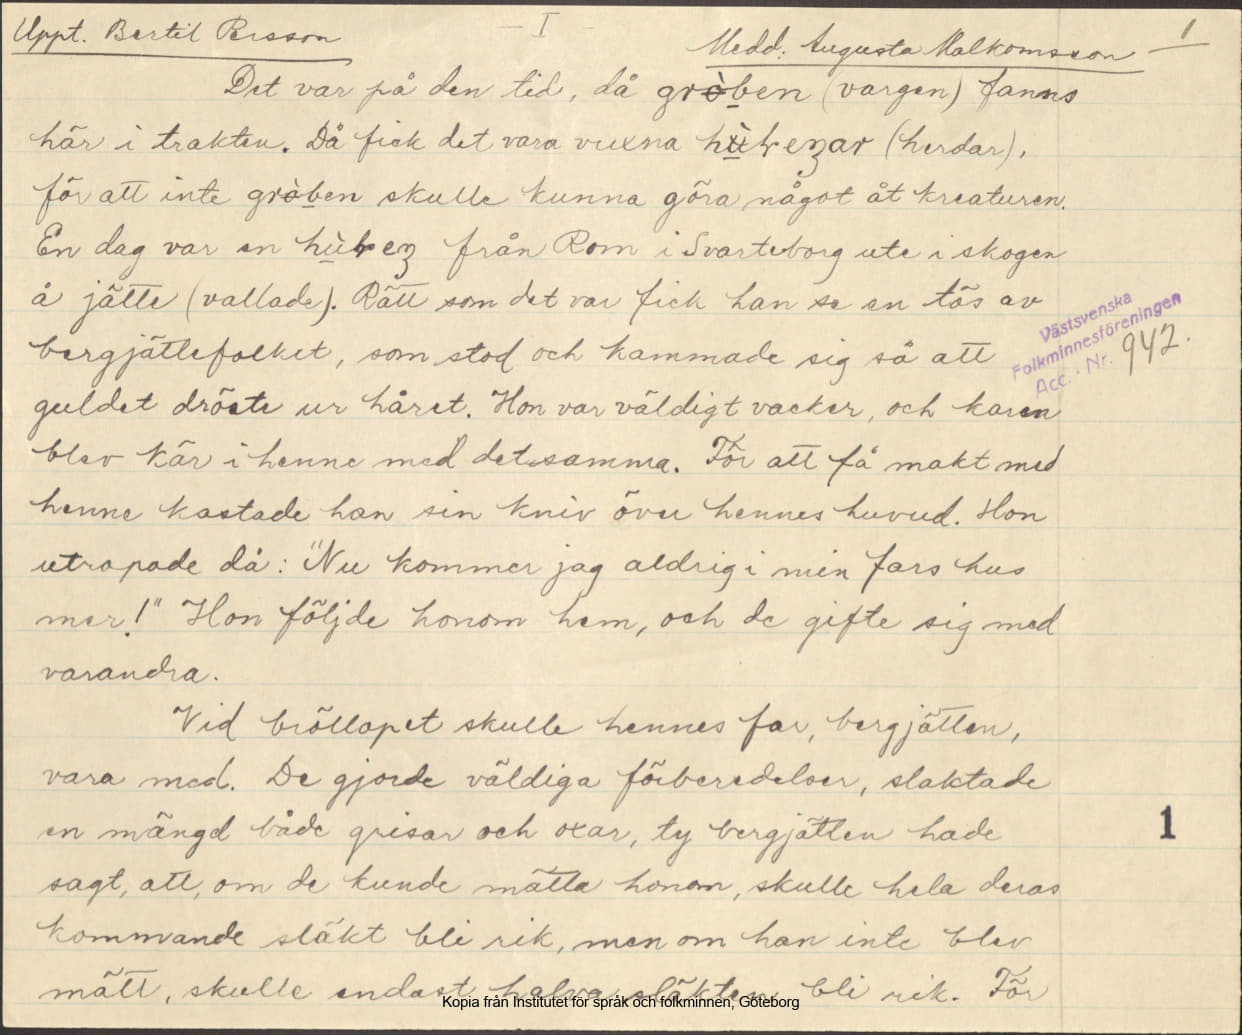 Uppt. Bertil Persson
– I –
Medd. Augusta Malkomsson
1
Det var på den tid, då gròben (vargen) fanns
här i trakten. Då fick det vara vuxna (herdar),
för att inte gròben skulle kunna göra något åt kreaturen.
En dag var en från Rom i Svarteborg ute i skogen
å jätte (vallade). Rätt som det var fick han se en tös av
bergjättefolket, som stod och kammade sig så att
guldet dröste ur håret. Hon var väldigt vacker, och karen
blev kär i henne med detsamma. För att få makt med
henne kastade han sin kniv över hennes huvud. Hon
utropade då: "Nu kommer jag aldrig i min fars hus
mer!" Hon följde honom hem, och de gifte sig med
varandra.
Västsvenska
Folkminnesföreningen
Acc. - Nr. 942.
Vid bröllopet skulle hennes far, bergjätten,
vara med. De gjorde väldiga förberedelser, slaktade
en mängd både grisar och oxar, ty bergjätten hade
sagt, att, om de kunde mätta honom, skulle hela deras
kommande släkt bli rik, men om han inte blev
mätt, skulle endast halva släkten bli rik. För
1
Kopia från Institutet för språk och folkminnen, Göteborg